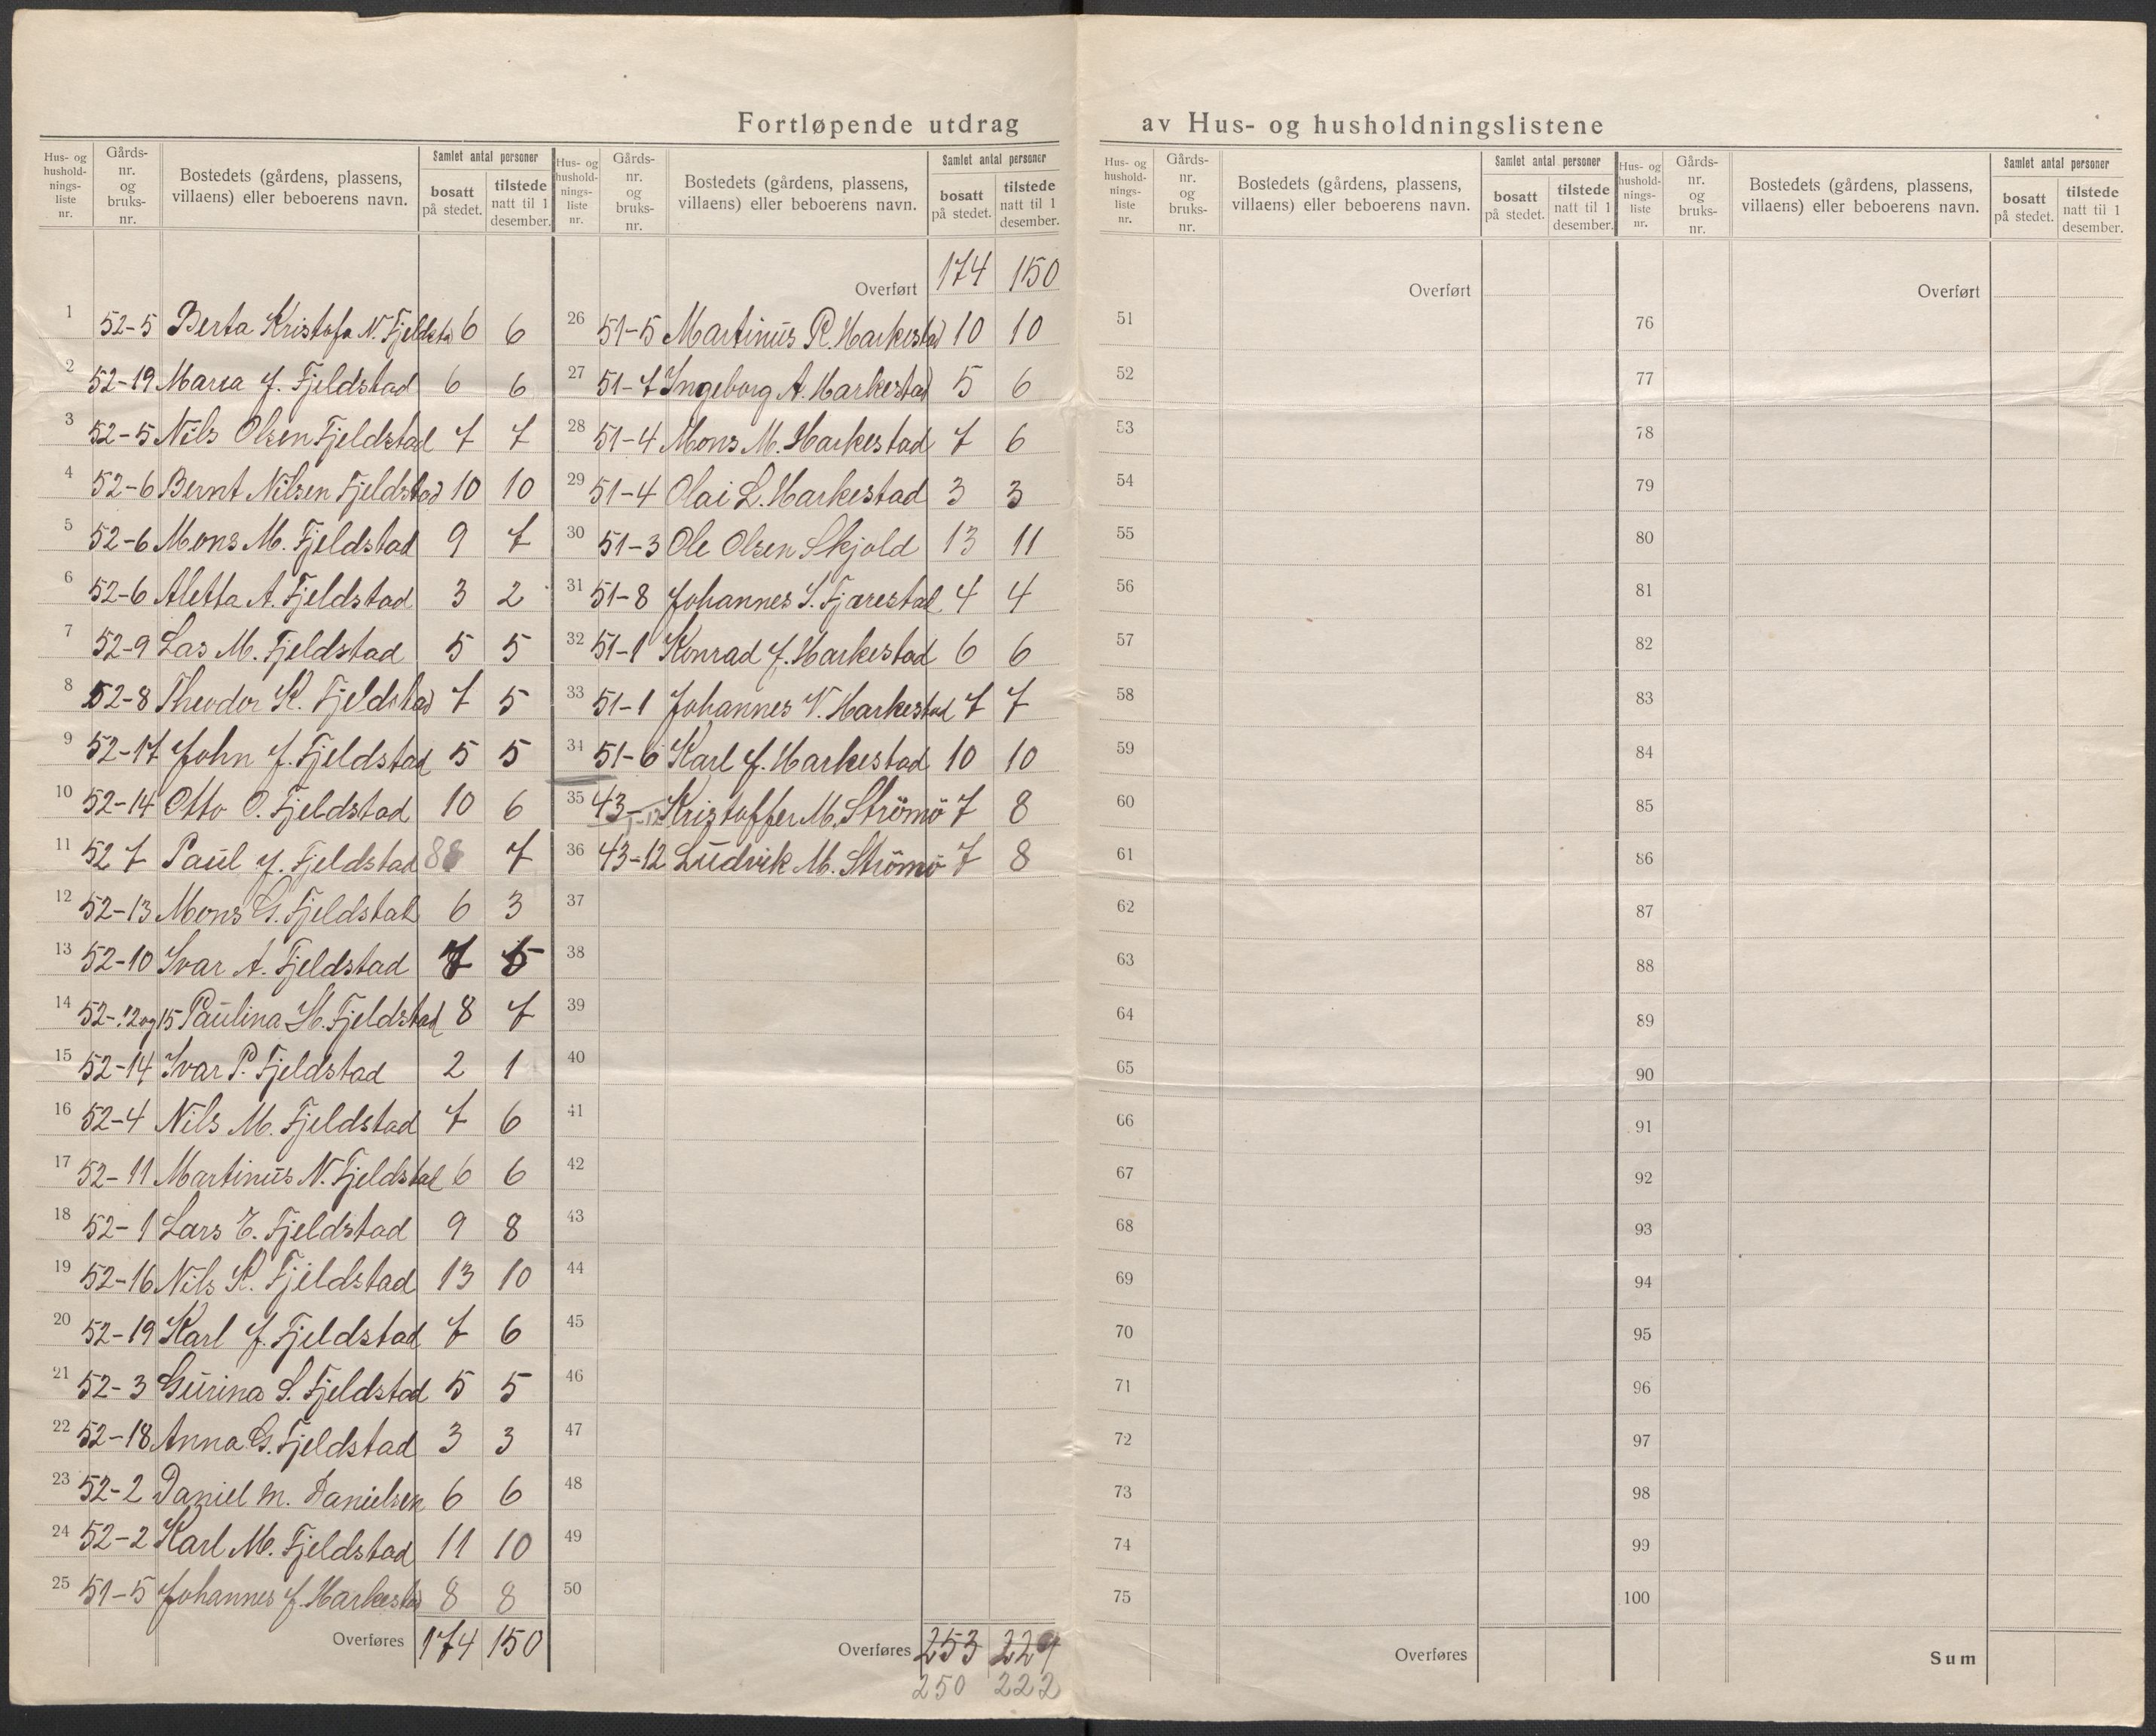 Fortløpende utdrag av Hus- og husholdningslistene
Hus- og hushold-nings-liste nr. | Gårds-nr. og bruks-nr. | Bostedets (gårdens, plassens, villaens) eller beboerens navn. | Samlet antal personer | bosatt på stedet. | tilstede natt til 1 desember.
1 52-5 Berta Kristofa N. Fjeldsta 6 6
2 52-19 Maria J. Fjeldstad 6 6
3 52-5 Nils Olsen Fjeldstad 7 7
4 52-6 Bernt Nilsen Fjeldstad 10 10
5 52-6 Mons M. Fjeldstad 9 7
6 52-6 Aletta A. Fjeldstad 3 2
7 52-9 Las M. Fjeldstad 5 5
8 52-8 Theodor K. Fjeldstad 7 5
9 52-17 John J. Fjeldstad 5 5
10 52-14 Otto O. Fjeldstad 10 6
11 52 7 Paul J. Fjeldstad 8 7
12 52-13 Mons G. Fjeldstad 6 3
13 52-10 Ivar A. Fjeldstad 7 5
14 52-12 og 15 Paulina H. Fjeldstad 8 7
15 52-14 Ivar P. Fjeldstad 2 1
16 52-4 Nils M. Fjeldstad 7 6
17 52-11 Martinus N. Fjeldstad 6 6
18 52-1 Lars E. Fjeldstad 9 8
19 52-16 Nils K. Fjeldstad 13 10
20 52-19 Karl J. Fjeldstad 7 6
21 52-3 Gurina S. Fjeldstad 5 5
22 52-18 Anna G. Fjeldstad 3 3
23 52-2 Daniel M. Danielsen 6 6
24 52-2 Karl M. Fjeldstad 11 10
25 51-5 Johannes J. Harkestad 8 8
Overføres 174 150
Hus- og hushold-nings-liste nr. | Gårds-nr. og bruks-nr. | Bostedets (gårdens, plassens, villaens) eller beboerens navn. | Samlet antal personer | bosatt på stedet. | tilstede natt til 1 desember.
Overført 174 150
26 51-5 Martinus R. Harkestad 10 10
27 51-7 Ingeborg A. Harkestad 5 6
28 51-4 Mons M. Harkestad 7 6
29 51-4 Olai L. Harkestad 3 3
30 51-3 Ole Olsen Skjold 13 11
31 51-8 Johannes S. Fjærestad 4 4
32 51-1 Konrad J. Harkestad 6 6
33 51-1 Johannes V. Harkestad 7 7
34 51-6 Karl J. Harkestad 10 10
35 43- Kristoffer M. Strömö 7 8
36 43-12 Ludvik M. Strömö 7 8
37
38
39
40
41
42
43
44
45
46
47
48
49
50
Overføres 253 229
250 222
Hus- og hushold-nings-liste nr. | Gårds-nr. og bruks-nr. | Bostedets (gårdens, plassens, villaens) eller beboerens navn. | Samlet antal personer | bosatt på stedet. | tilstede natt til 1 desember.
Overført
51
52
53
54
55
56
57
58
59
60
61
62
63
64
65
66
67
68
69
70
71
72
73
74
75
Overføres
Hus- og hushold-nings-liste nr. | Gårds-nr. og bruks-nr. | Bostedets (gårdens, plassens, villaens) eller beboerens navn. | Samlet antal personer | bosatt på stedet. | tilstede natt til 1 desember.
Overført
76
77
78
79
80
81
82
83
84
85
86
87
88
89
90
91
92
93
94
95
96
97
98
99
100
Sum